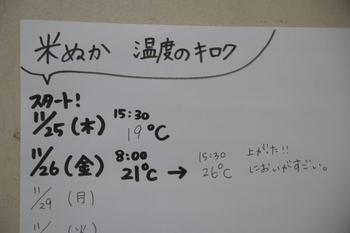 米ぬか 温度のキロク
スタート!
11/25(木) 15:30 19℃
11/26(金) 8:00 21℃ → 15:30 26℃ 上がた!! においがすごい。
11/29 (月)